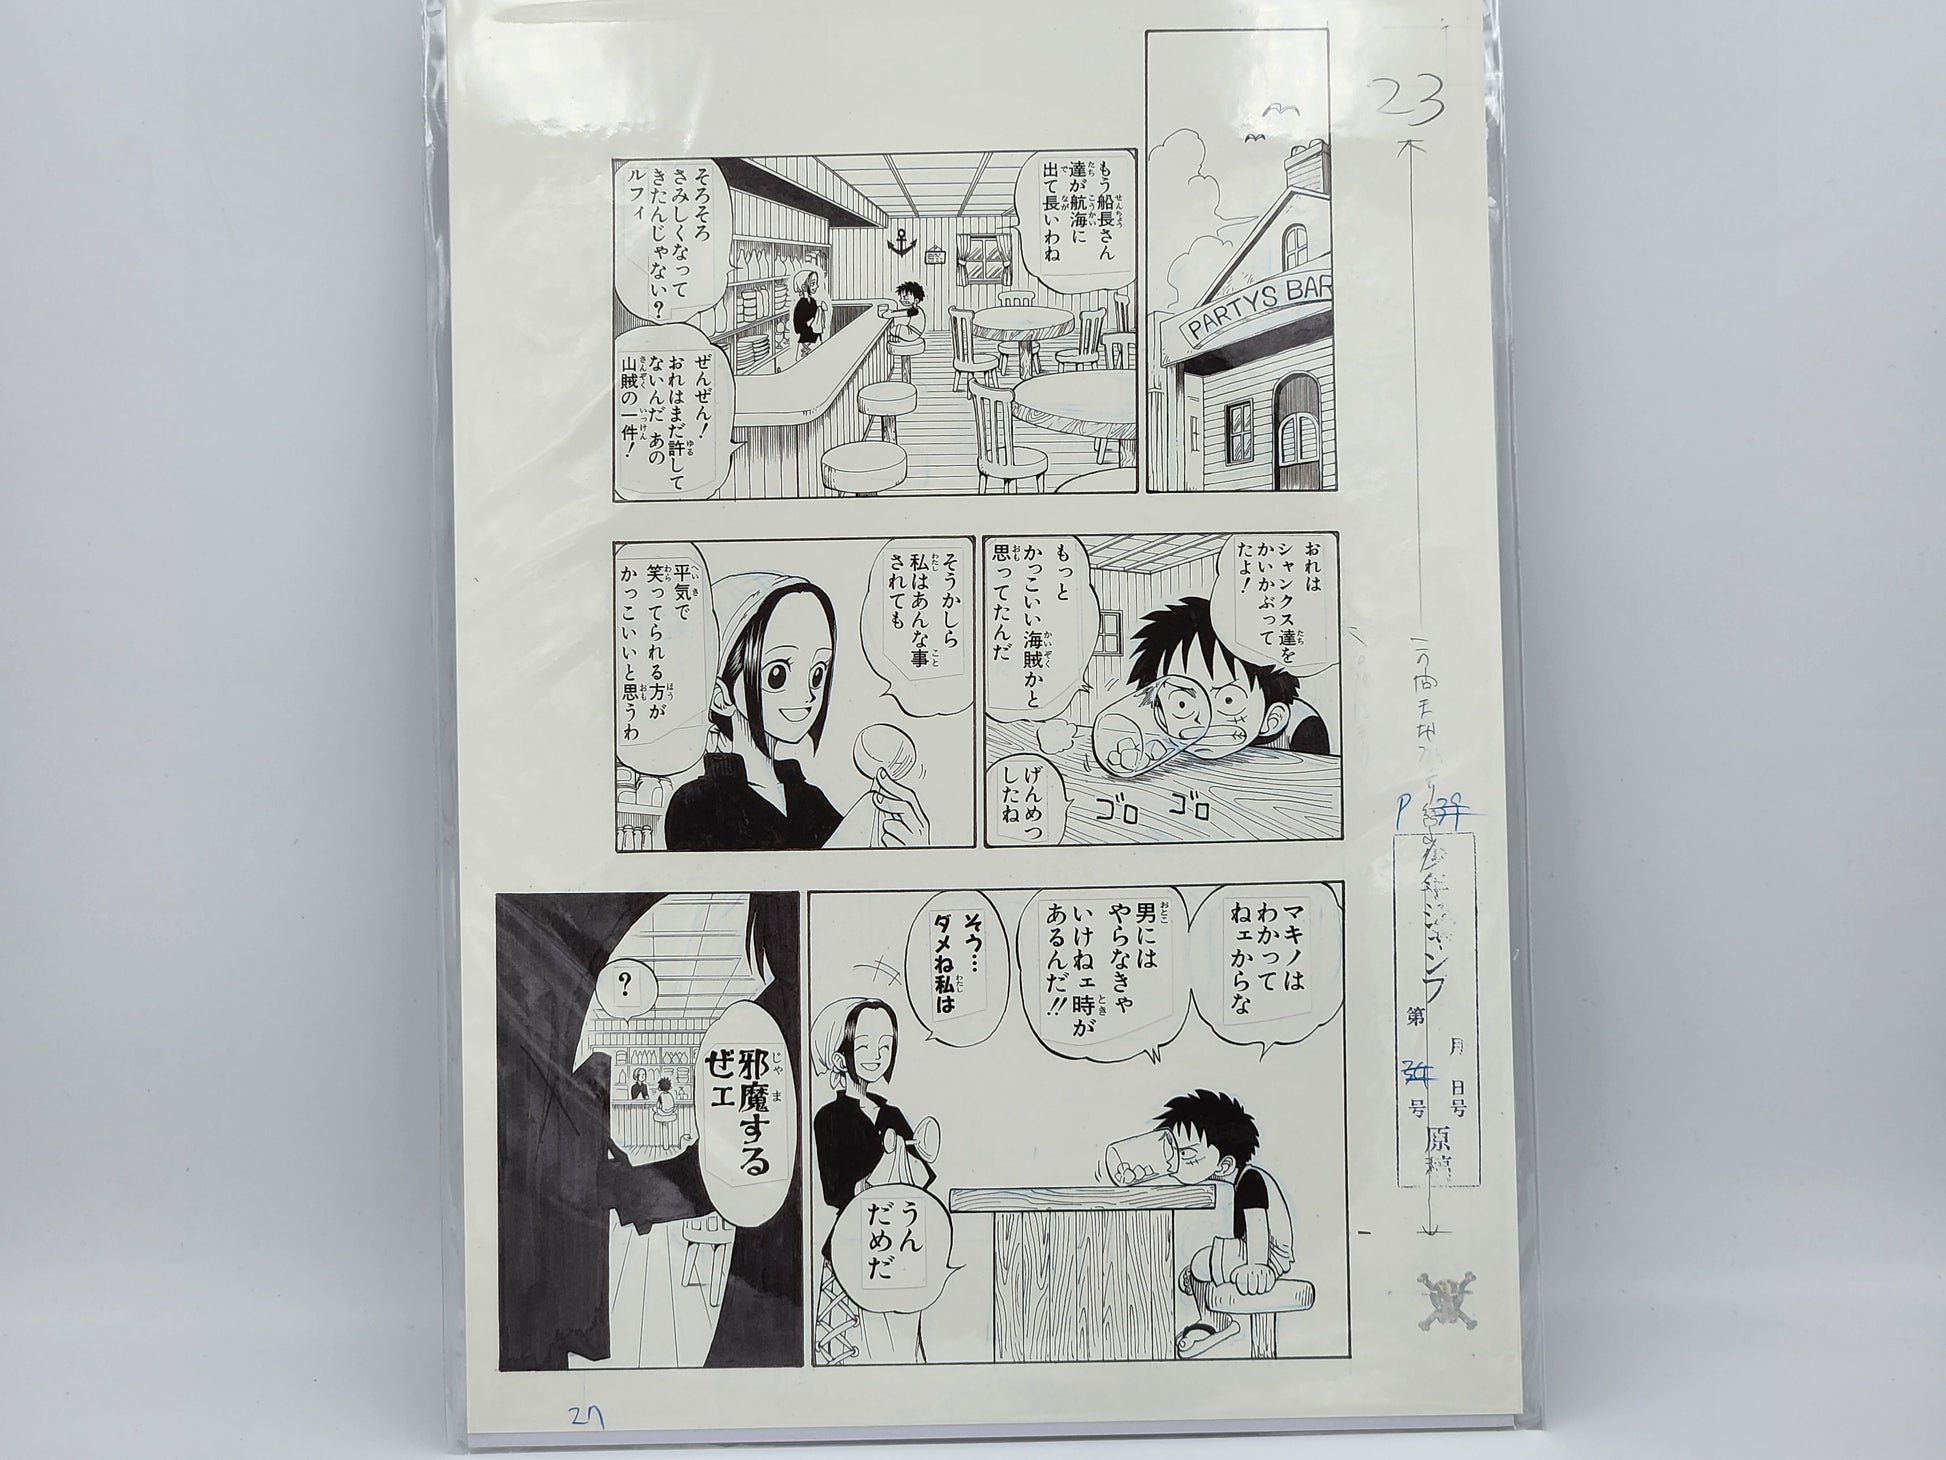 23
PARTYS BAR
もう船長さん
達が航海に
出て長いわね
そろそろ
さみしくなって
きたんじゃない?
ルフィ
ぜんぜん!
おれはまだ許して
ないんだ あの
山賊の一件!
おれは
シャンクス達を
かいかぶって
たよ!
もっと
かっこいい海賊かと
思ってたんだ
げんめつ
したね
ゴロ ゴロ
そうかしら
私はあんな事
されても
平気で
笑ってられる方が
かっこいいと思うわ
マキノは
わかって
ねェからな
男には
やらなきゃ
いけねェ時が
あるんだ!!
そう…
ダメね私は
うん
だめだ
?
邪魔する
ぜェ
少年ジャンプ
第 号
月 日号
原稿
27